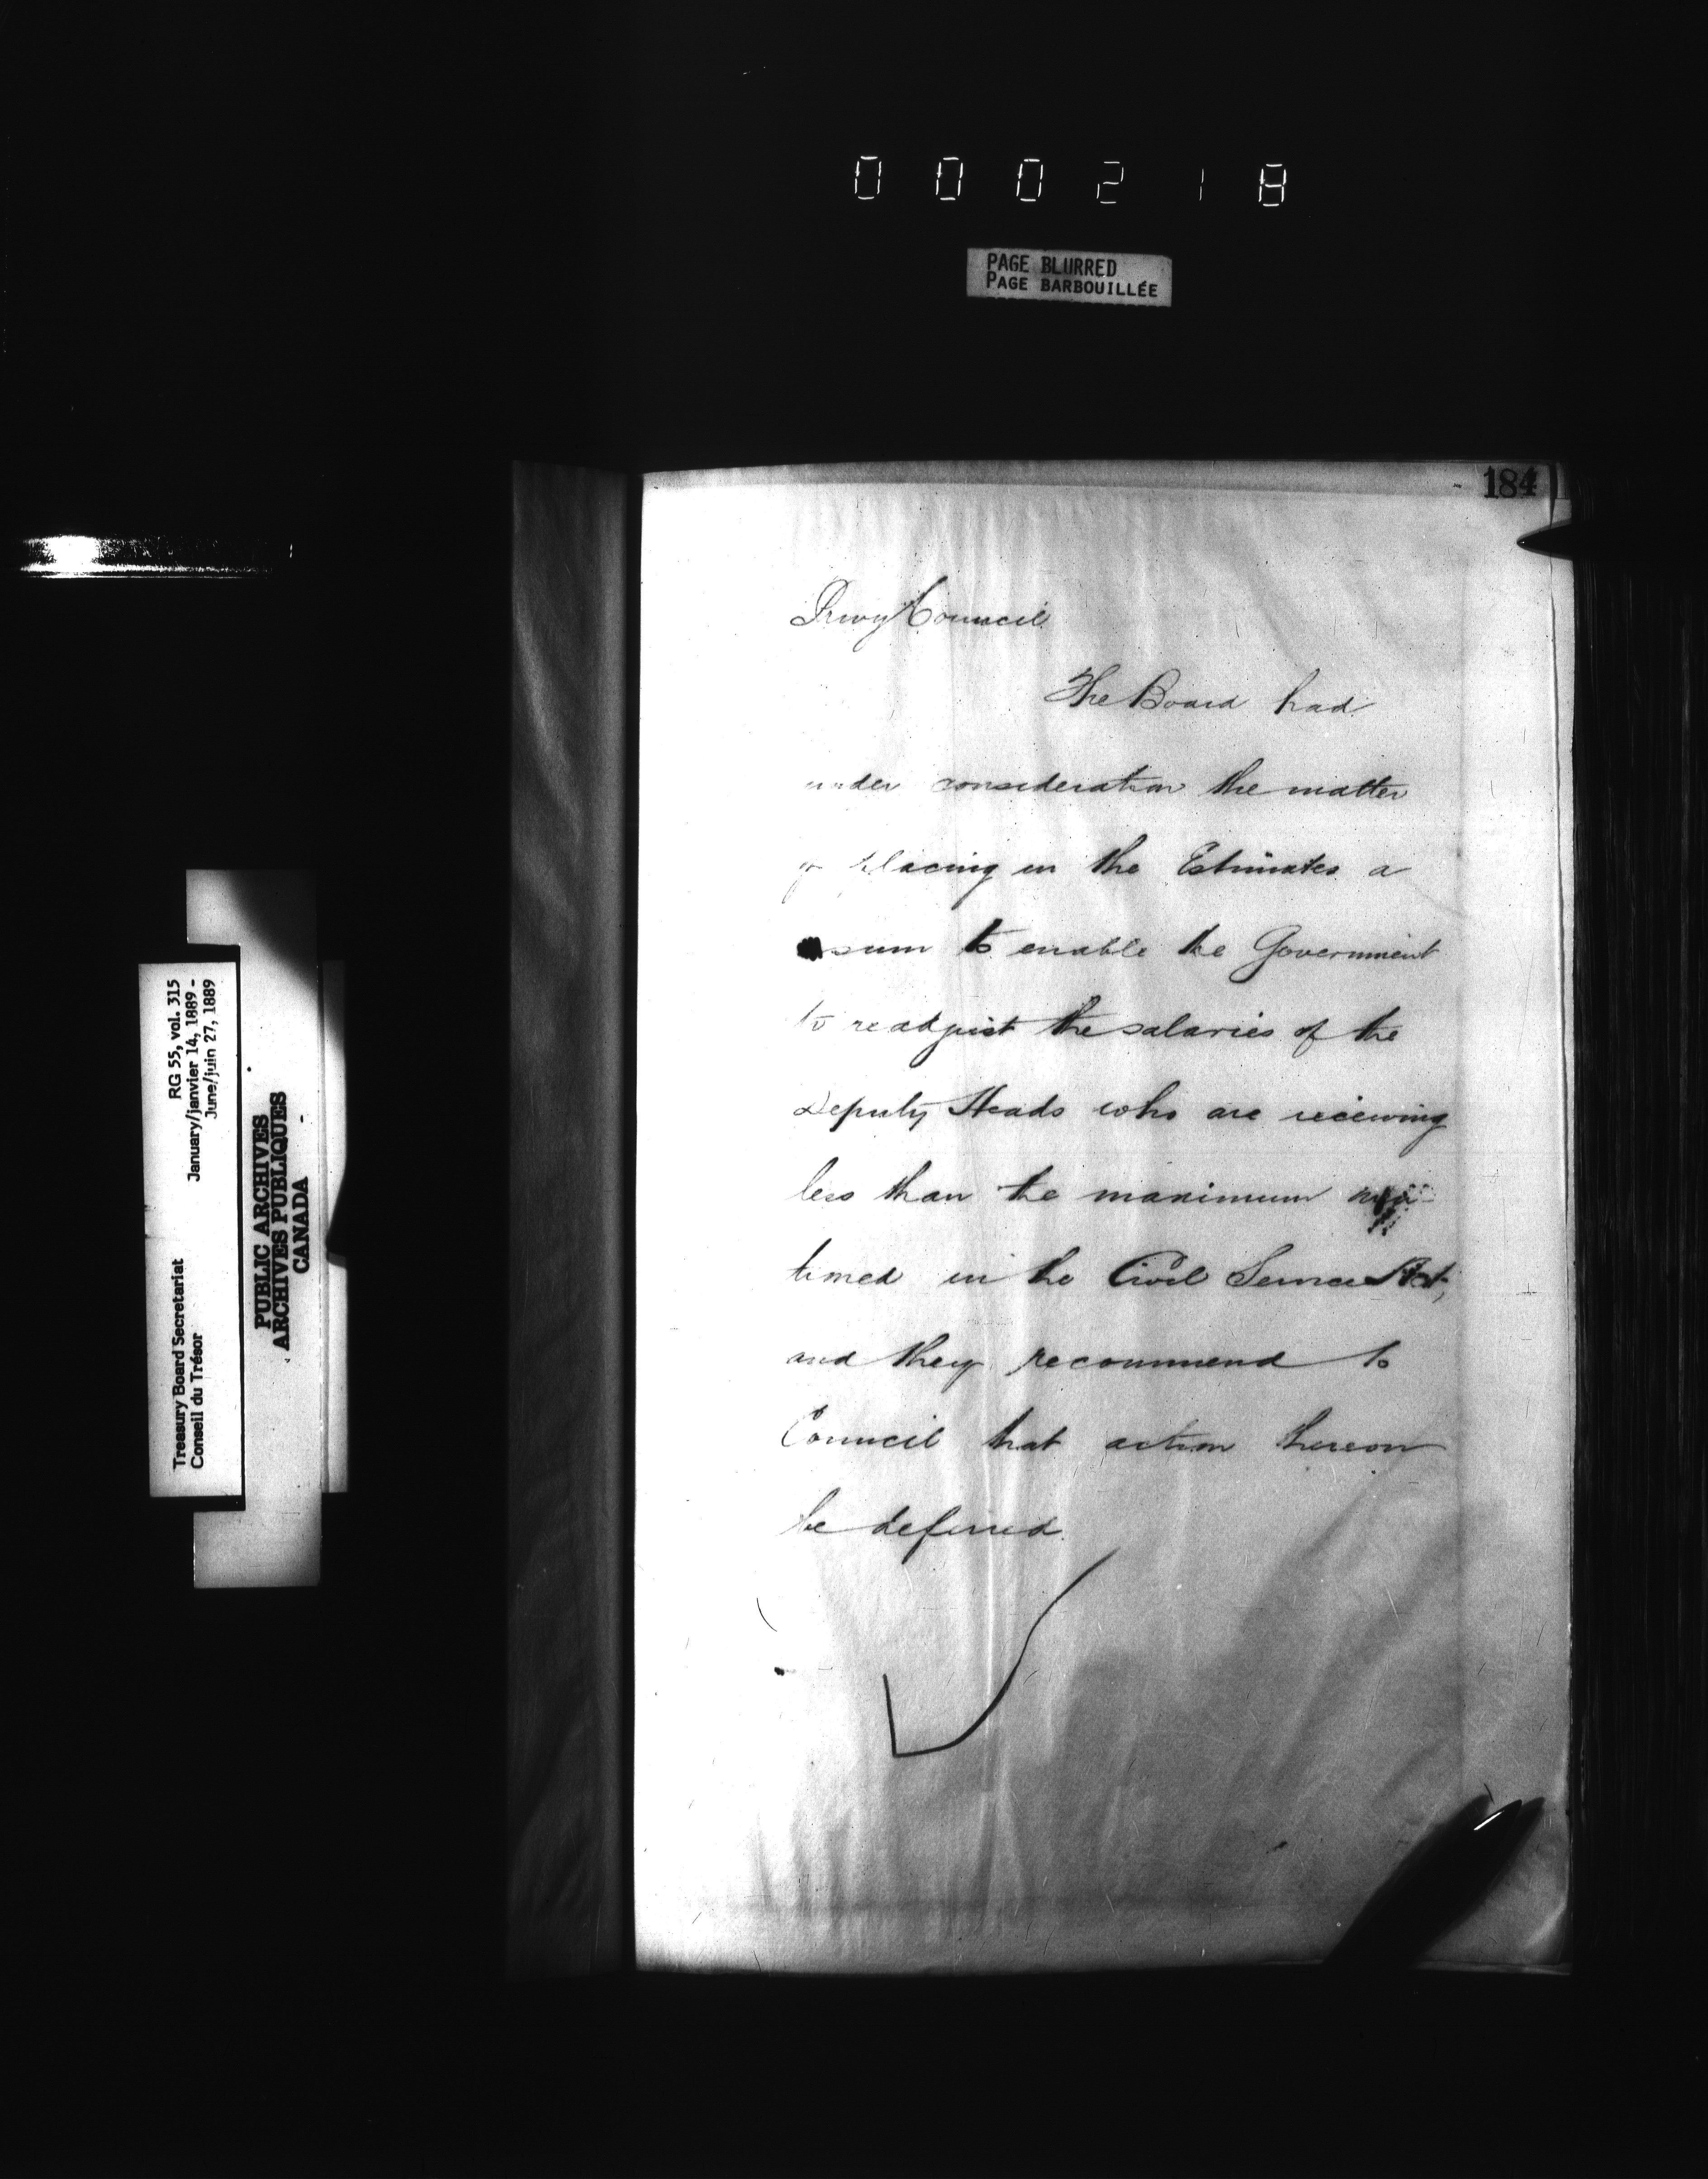 000218
PAGE BLURRED
PAGE BARBOUILLÉE
184
Privy Council
The Board had
under consideration the matter
of placing in the Estimates a
sum to enable the Government
to readjust the salaries of the
Deputy Heads who are receiving
less than the maximum
tioned in the Civil Service Act,
and they recommend to
Council that action thereon
be deferred.
RG 55, vol. 315
January/janvier 14, 1889 -
June/juin 27, 1889
Treasury Board Secretariat
Conseil du Trésor
PUBLIC ARCHIVES
ARCHIVES PUBLIQUES
CANADA